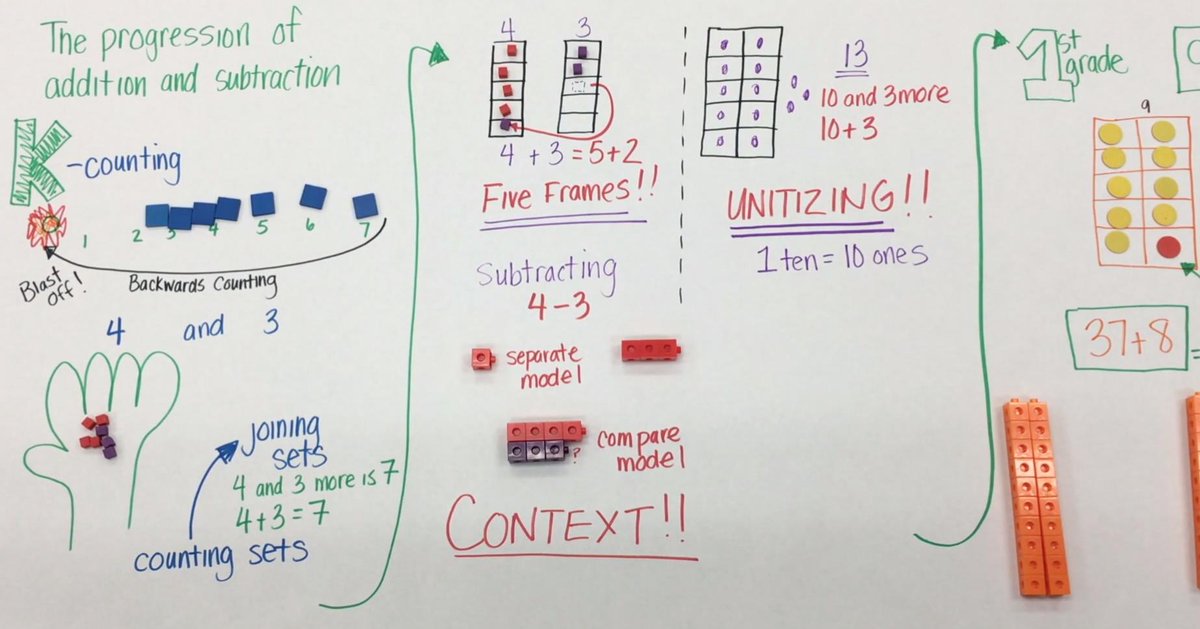 The progression of
addition and subtraction
K
-counting
1 2 3 4 5 6 7
Blast
off!
Backwards Counting
4 and 3
joining
sets
4 and 3 more is 7
4+3=7
counting sets
4 3
4 + 3 = 5+2
Five Frames!!
Subtracting
4-3
separate
model
?
compare
model
CONTEXT!!
13
10 and 3 more
10+3
UNITIZING!!
1 ten = 10 ones
1st
grade
9
37+8
=